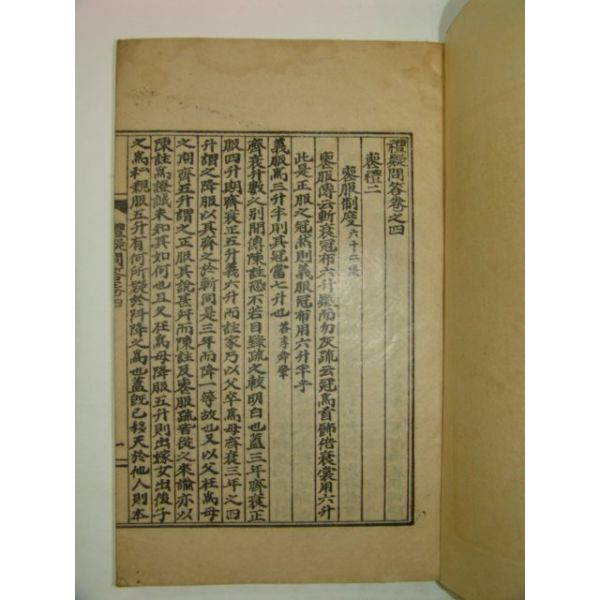 禮疑問答卷之四
喪禮二
喪服制度六十二條
喪服傳云斬衰冠布六升鍛而勿灰疏云冠爲首飾倍衰裳用六升
此是正服之冠然則義服冠布用六升半乎
義服爲三升半則其冠當七升也答李舜肇
齊衰升數之別間傳陳註恐不若目錄疏之較明白也蓋三年齊衰正
服四升期齊衰正五升義六升而註家乃以父卒爲母齊衰三年之四
升謂之降服以其齊之於斬同是三年而降一等故也又以父在爲母
之期齊五升謂之正服其說甚舛而陳註及喪服疏皆從之來諭亦以
陳註爲證誠未知其如何也且父在爲母降服五升則出嫁女出後子
之爲私親服五升有何所疑於再降之爲也蓋旣已移天於他人則本
禮疑問答卷四
一